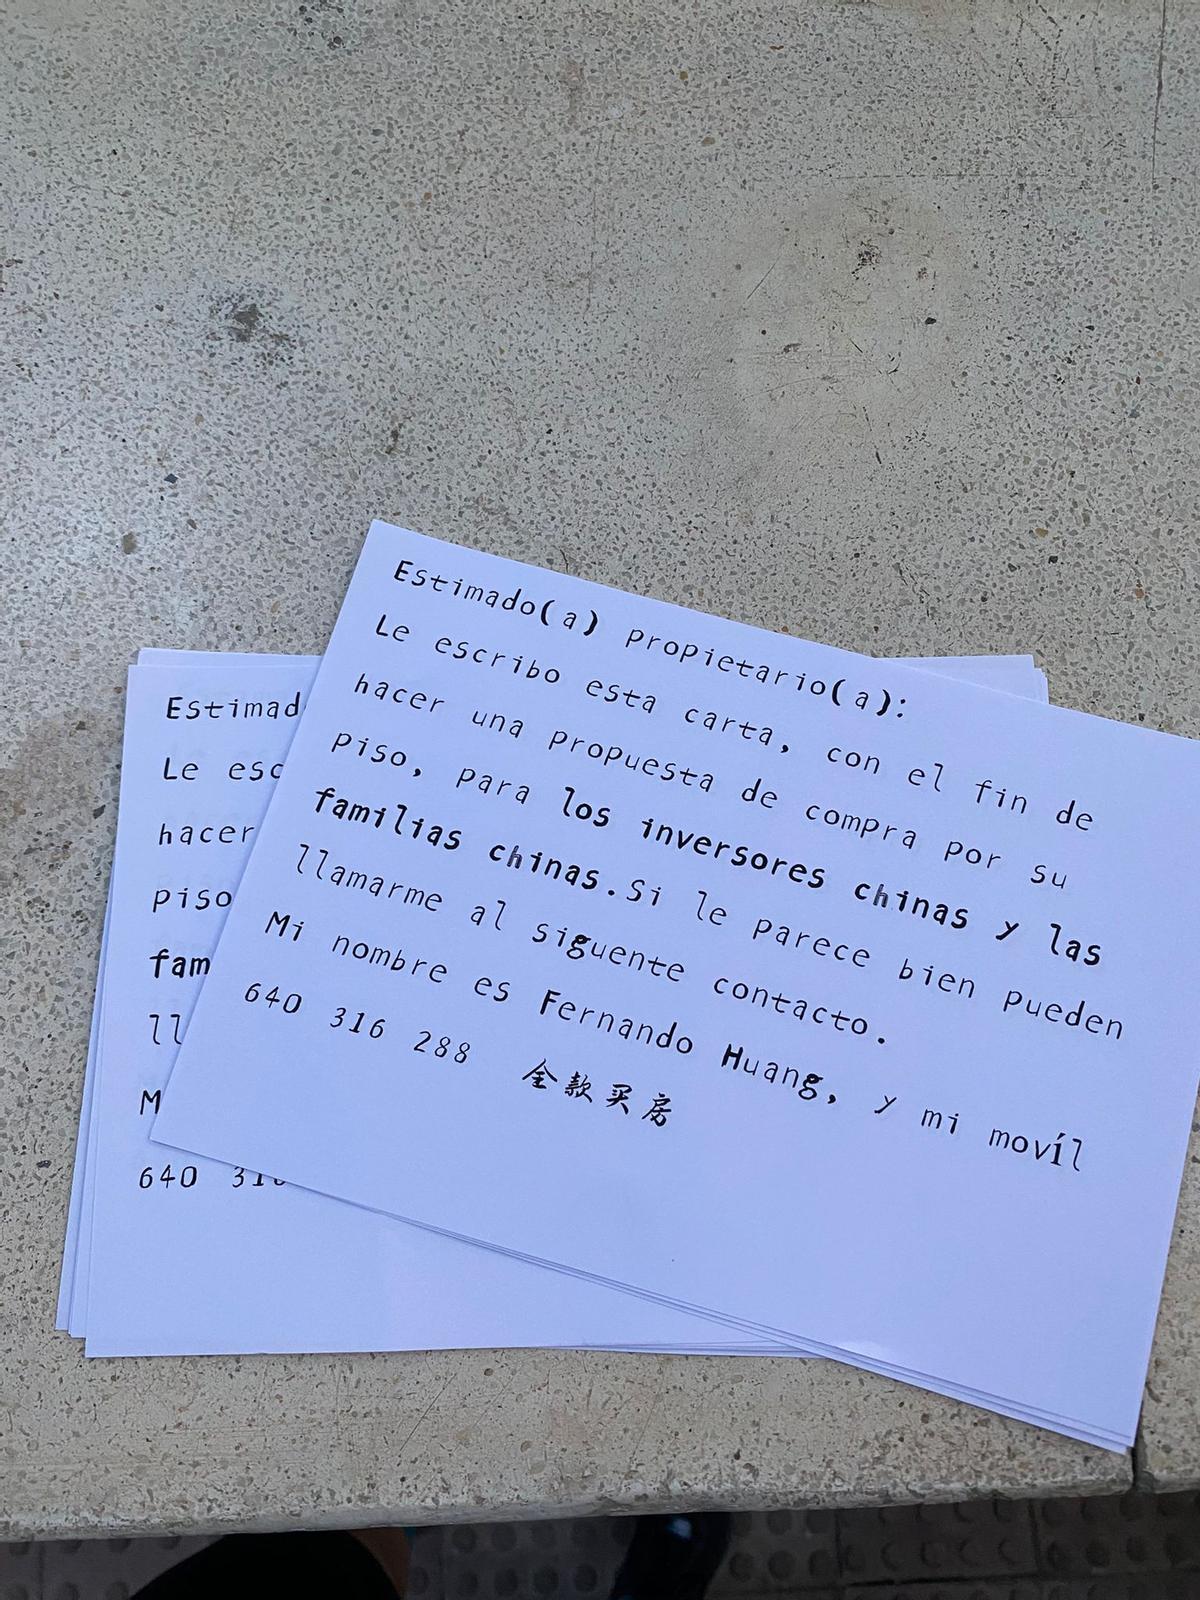 Estimado(a) propietario(a):
Le escribo esta carta, con el fin de
hacer una propuesta de compra por su
piso, para los inversores chinas y las
familias chinas.Si le parece bien pueden
llamarme al siguente contacto.
Mi nombre es Fernando Huang, y mi movíl
640 316 288 全款买房
Estimad
Le esc
hacer
piso
fam
ll
M
640 316